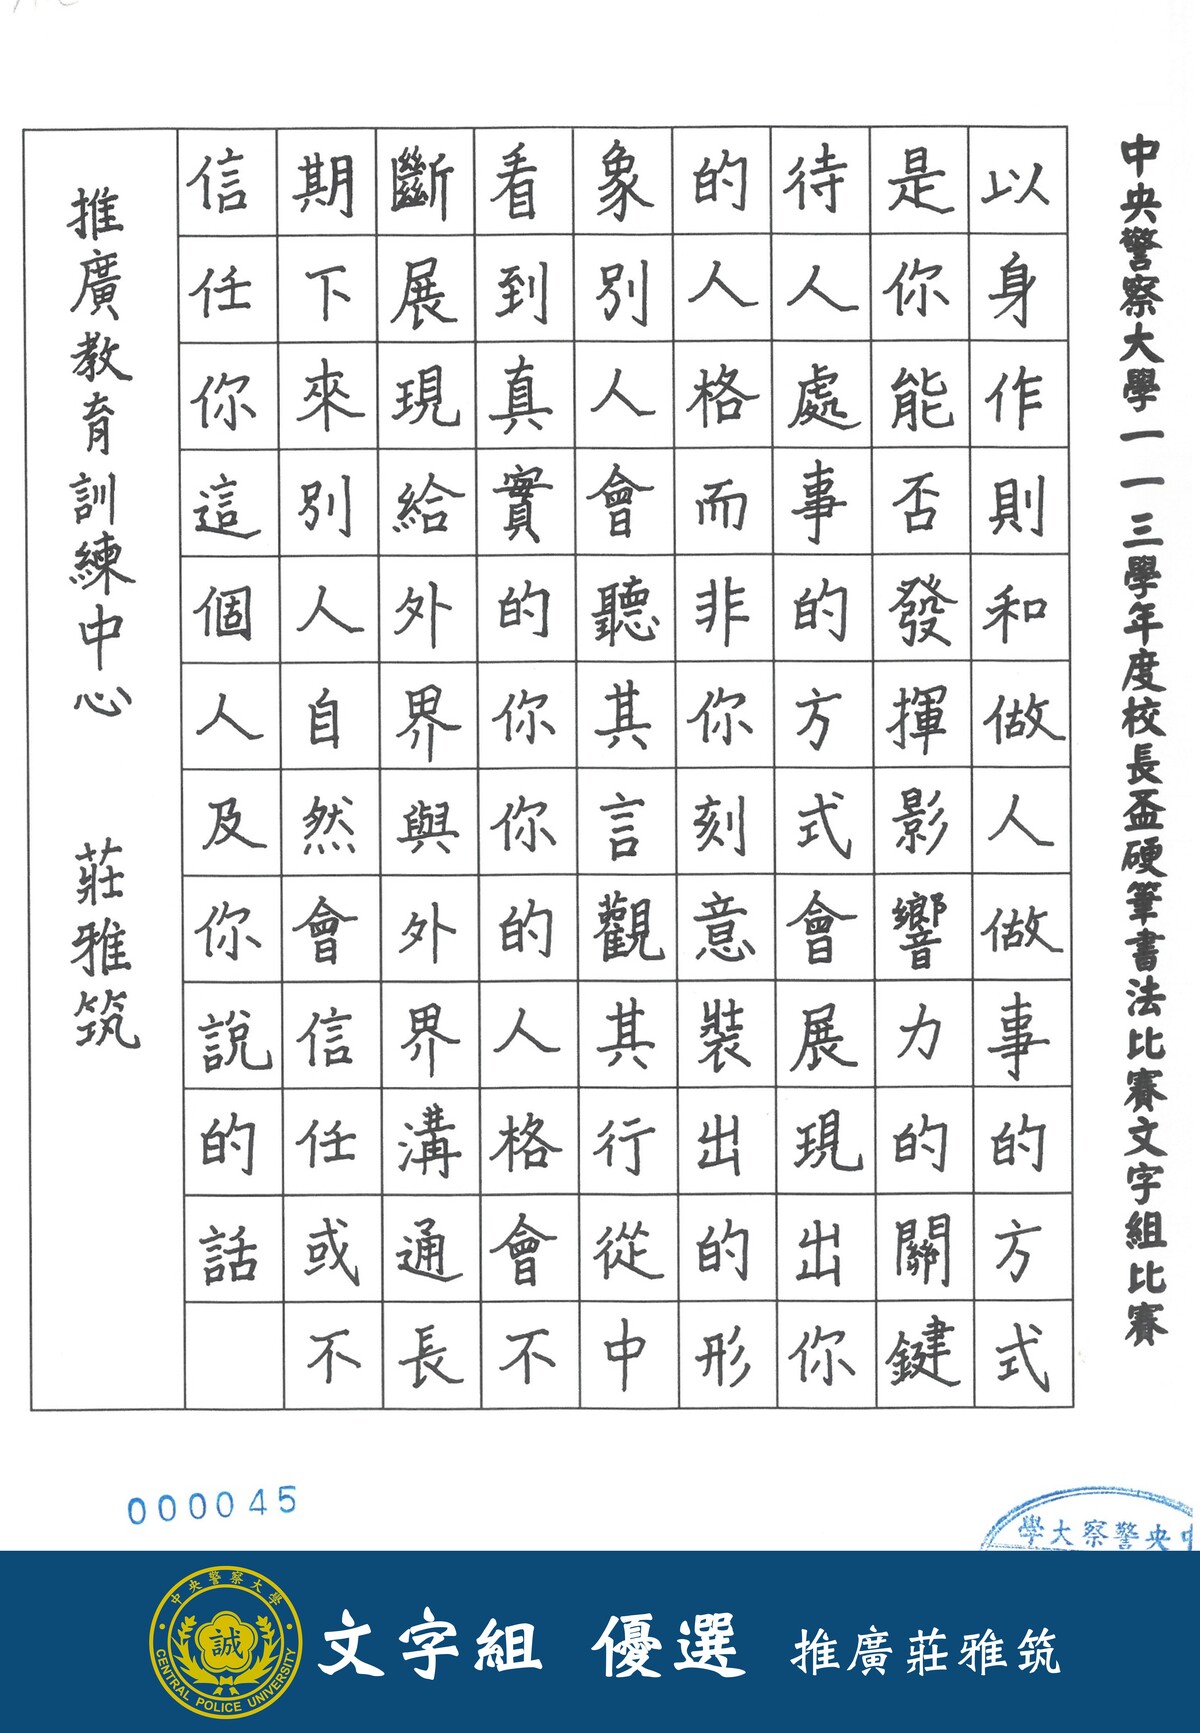 中央警察大學一一三學年度校長盃硬筆書法比賽文字組比賽
以身作則和做人做事的方式
是你能否發揮影響力的關鍵
待人處事的方式會展現出你
的人格而非你刻意裝出的形
象別人會聽其言觀其行從中
看到真實的你你的人格會不
斷展現給外界與外界溝通長
期下來別人自然會信任或不
信任你這個人及你說的話
推廣教育訓練中心 莊雅筑
000045
中央警察大學
中央警察大學
誠
CENTRAL POLICE UNIVERSITY
文字組 優選 推廣莊雅筑